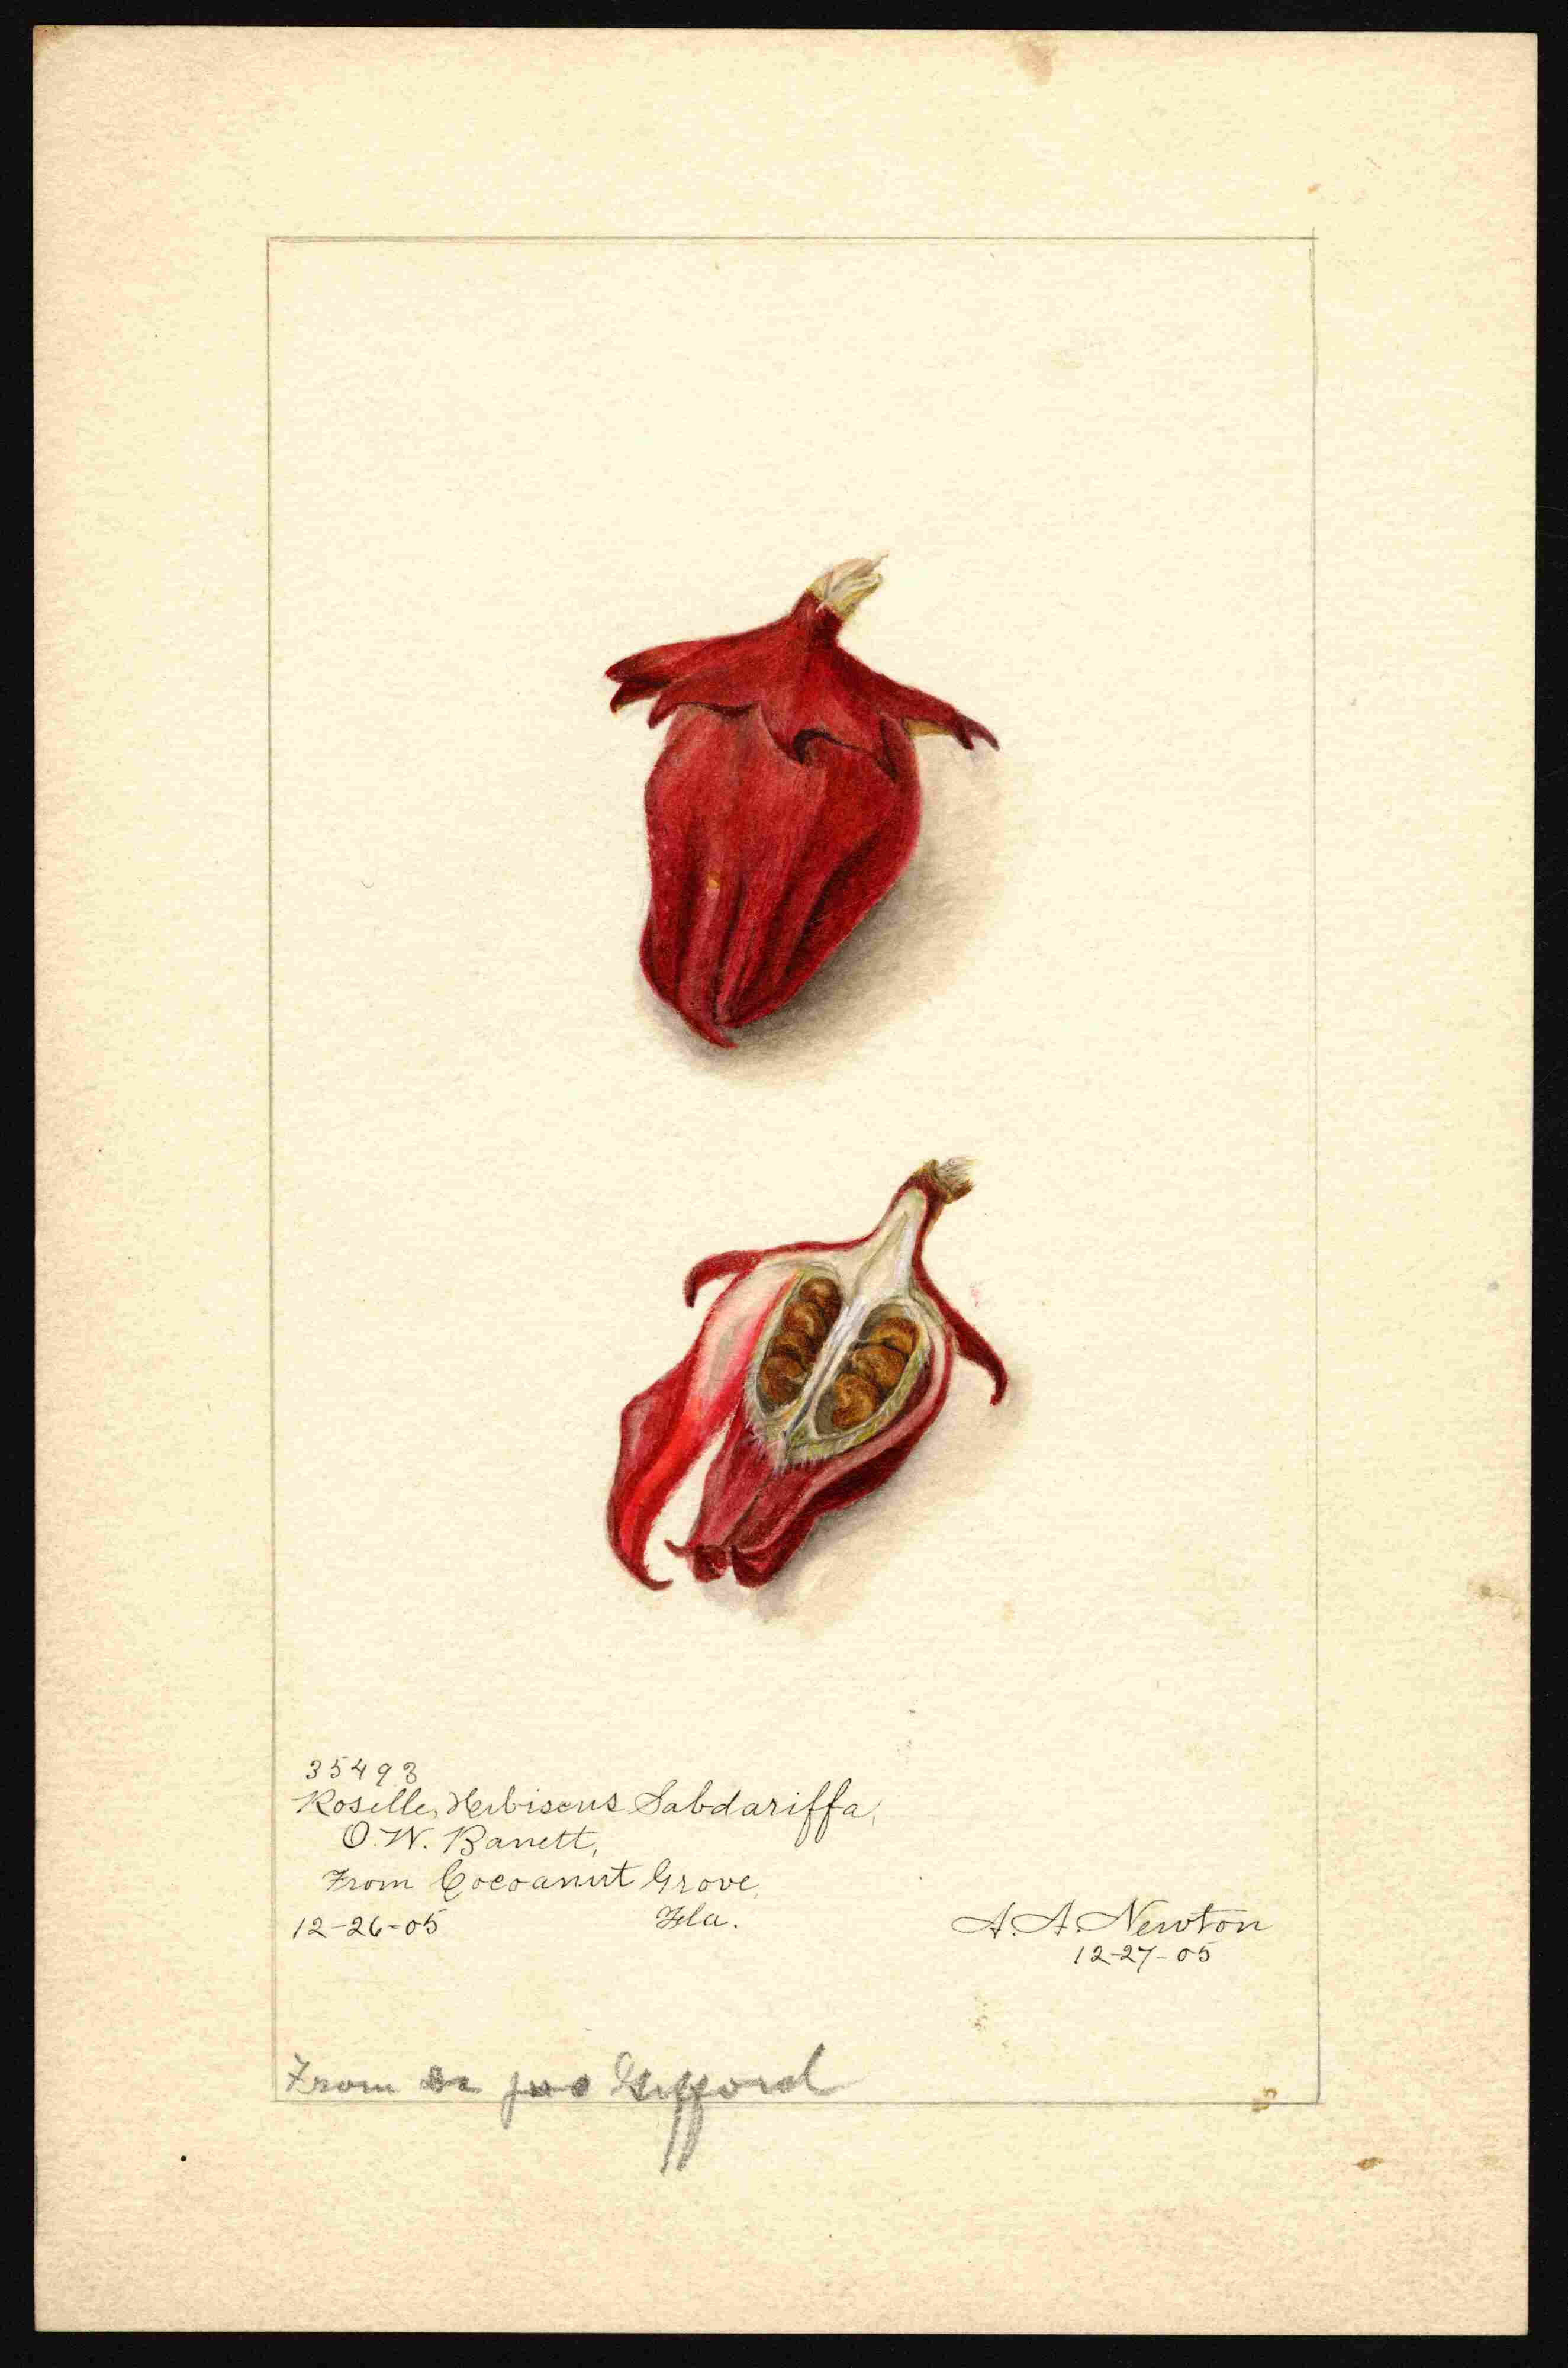 35493
Roselle, Hibiscus Sabdariffa,
O. W. Barrett,
From Cocoanut Grove,
12-26-05 Fla.
A. A. Newton
12-27-05
From Dr Jno Gifford